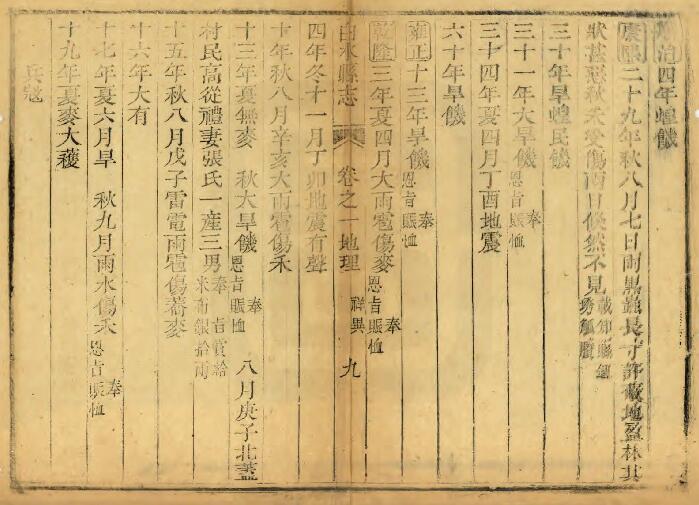 順治四年蝗饑
康熙二十九年秋八月七日雨黑蟲長寸許嚴地盈林其
狀甚惡秋禾受傷兩日倏然不見
三十年旱蝗民饑
三十一年大旱饑奉恩旨賑恤
三十四年夏四月丁酉地震
六十年旱饑
雍正十三年旱饑奉恩旨賑恤
乾隆三年夏四月大雨雹傷麥奉恩旨賑恤
白水縣志 卷之一 地理 祥異 九
四年冬十一月丁卯地震有聲
十年秋八月辛亥大雨雹傷禾
十三年夏無麥 秋大旱饑奉恩旨賑恤 八月庚子北蓋
村民高從禮妻張氏一産三男奉旨賞給米布銀拾兩
十五年秋八月戊子雷電雨雹傷蕎麥
十六年大有
十七年夏六月旱 秋九月雨水傷禾奉恩旨賑恤
十九年夏麥大穫
兵寇